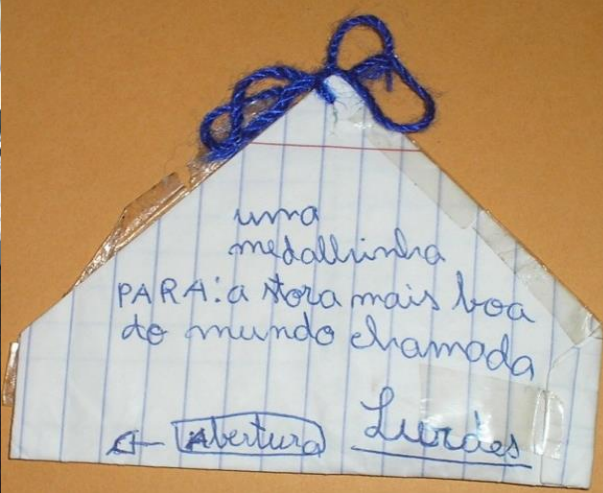 uma
medalhinha
PARA: a stora mais boa
do mundo chamada
Lurdes
← Abertura